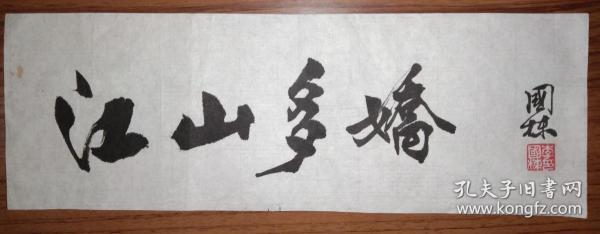 江山多嬌
國棟
孔夫子旧书网
www.kongfz.com